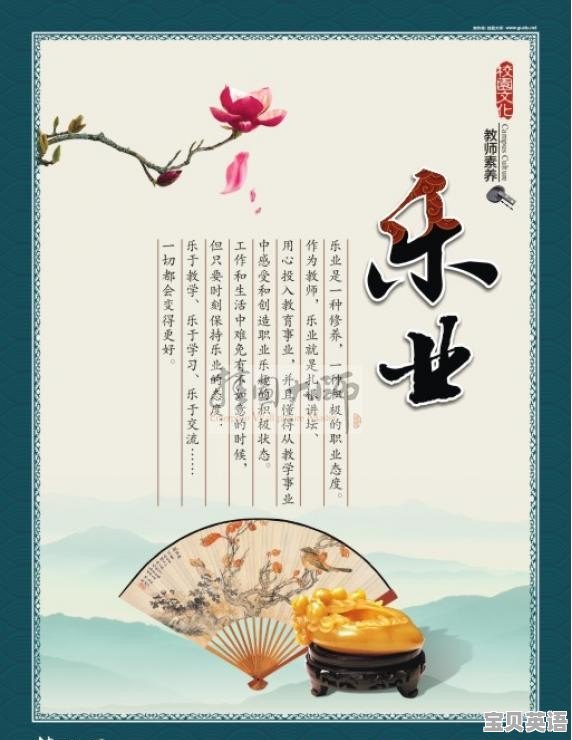 校园文化
Campus Culture
教师素养
乐业
乐业是一种修养，一种积极的职业态度。
作为教师，乐业就是扎根讲坛、
用心投入教育事业，并且懂得从教学事业
中感受和创造职业乐趣的积极状态。
工作和生活中难免有不如意的时候，
但只要时刻保持乐业的态度：
乐于教学、乐于学习、乐于交流……
一切都会变得更好。
宝贝英语